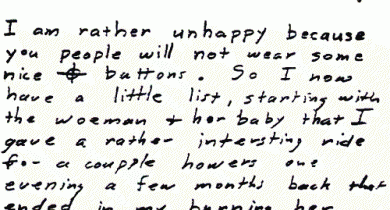 I am rather unhappy because
you people will not wear some
nice ⌖ buttons. So I now
have a little list, starting with
the woeman + her baby that I
gave a rather intersting ride
for a coupple howers one
evening a few months back that
ended in my burning her